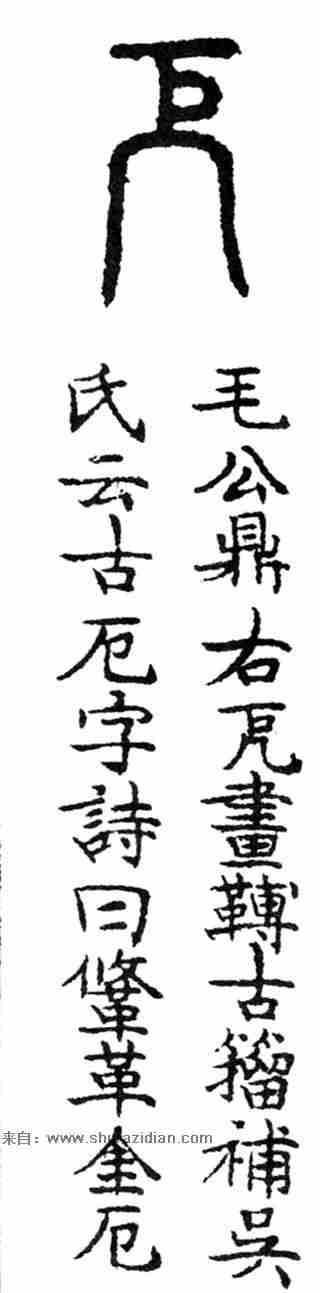 毛公鼎右戹畫古籀補吳
氏云古厄字詩曰鞗革金厄
来自：www.shufazidian.com